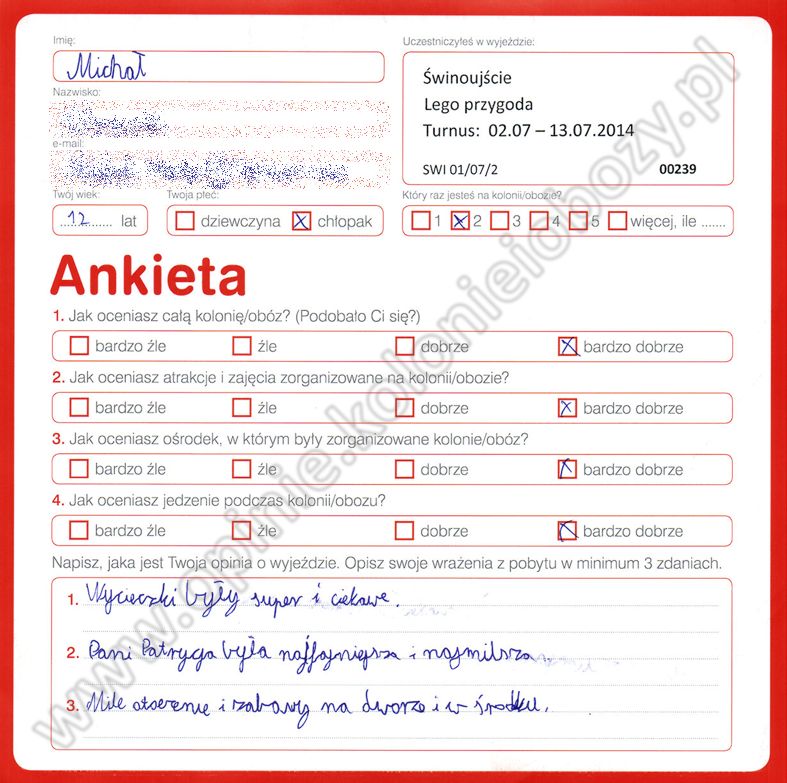 Imię:
Michał
Nazwisko:
e-mail:
Twój wiek:
12 lat
Twoja płeć:
dziewczyna chłopak
Uczestniczyłeś w wyjeździe:
Świnoujście
Lego przygoda
Turnus: 02.07 – 13.07.2014
SWI 01/07/2 00239
Który raz jesteś na kolonii/obozie?
1 2 3 4 5 więcej, ile .......
Ankieta
1. Jak oceniasz całą kolonię/obóz? (Podobało Ci się?)
bardzo źle źle dobrze bardzo dobrze
2. Jak oceniasz atrakcje i zajęcia zorganizowane na kolonii/obozie?
bardzo źle źle dobrze bardzo dobrze
3. Jak oceniasz ośrodek, w którym były zorganizowane kolonie/obóz?
bardzo źle źle dobrze bardzo dobrze
4. Jak oceniasz jedzenie podczas kolonii/obozu?
bardzo źle źle dobrze bardzo dobrze
Napisz, jaka jest Twoja opinia o wyjeździe. Opisz swoje wrażenia z pobytu w minimum 3 zdaniach.
1. Wycieczki były super i ciekawe.
2. Pani Patrycja była najfajniejsza i najmilsza
3. Miłe otoczenie i zabawy na dworze i w środku.
www.opinie.kolonieiobozy.pl